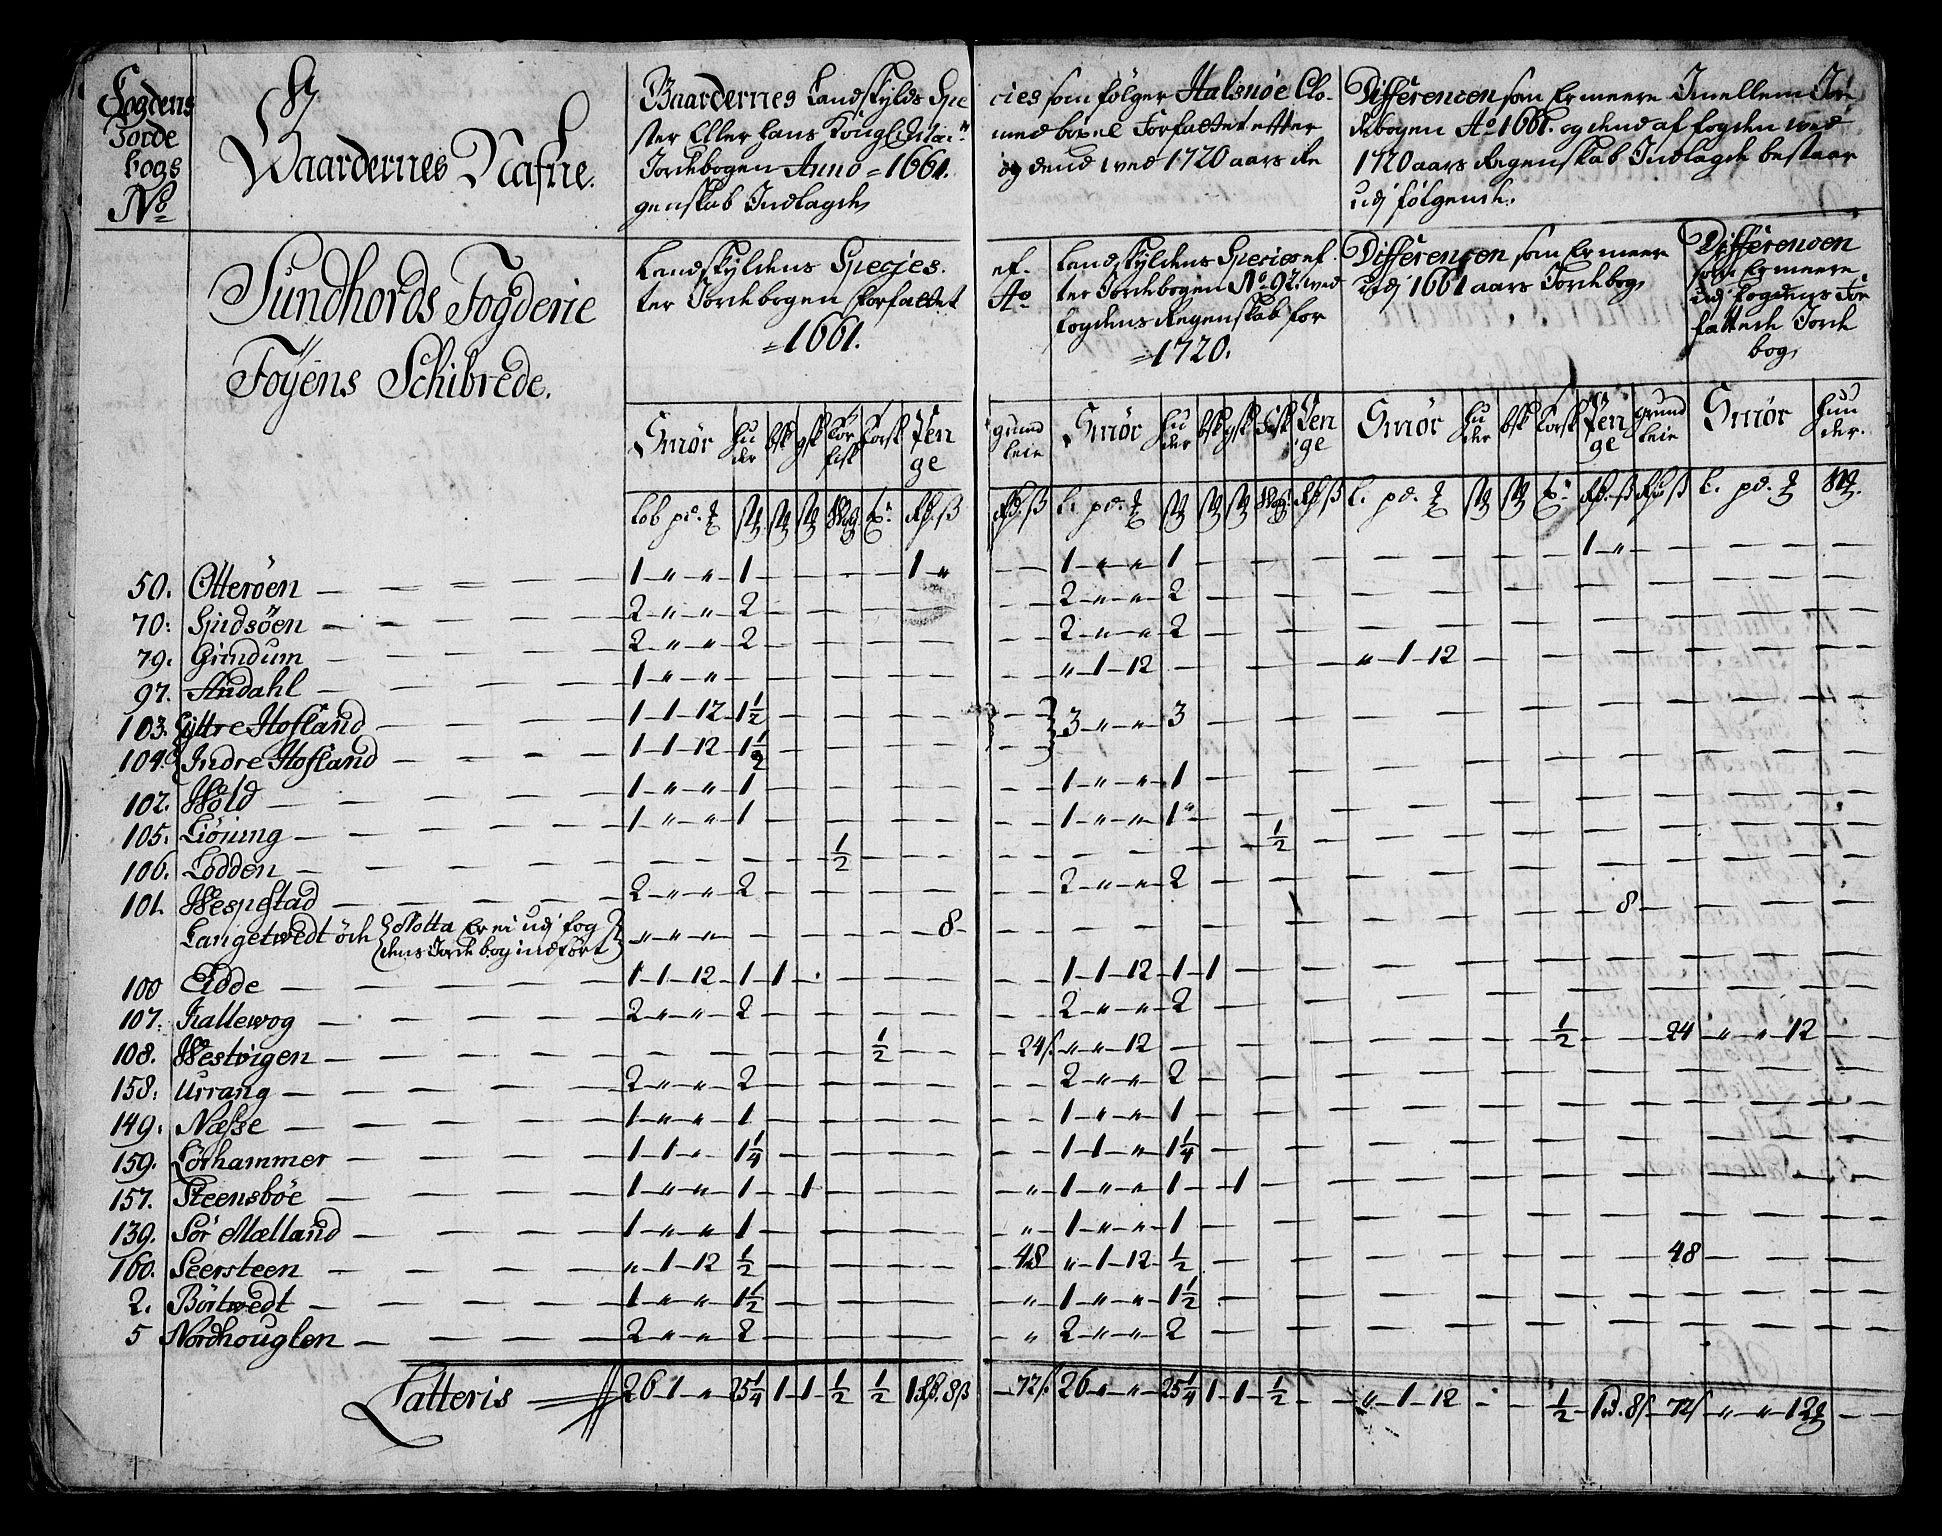 Fogdens
Jorde
bogs
No
Gaardernes Nafne.
Gaardernes Landskylds Spe
ster Eller hans Kongl:
Jordebogen Anno =1661.
genskab Indlagde
cies som følger Halsnöe Clo-
med boxel Forfattet etter
og dend wed 1720 aars Re
Differencen som Er meere Imellem Jor
debogen Ao 1661. og dend af fogden wed
1720 aars Regenskab Indlagde bestaar
udj følgende.
Sundhords Fogderie
Föyens Schibrede.
Landskyldens Specjes
ter Jordebogen forfattet
=1661.
ef-
Ao
Landskyldens Species ef
ter Jordebogen No 92: wed
fogdens Regenskab for
=1720.
Differencen som Er meere
udj 1661 aars Jordebog
Differencen
som Er meere
udj fogdens for
fattede Jorde
bog
Smör hu der bsk gsk Tör fisk Korsk Pen ge grund leie Smör hu der bsk gsk Fisk Pen ge Smör hu der bsk Korsk Pen ge grund leie Smör huu der.
lob pd. stk stk stk Wog Rd. ß Rd. ß l. pd. stk stk stk Wog Rd ß l. pd. stk stk Rd. ß Rd ß l. pd. stk.
50. Otteröen — 1 " " 1 — 1 " — 1 " " 1 — 1 " —
70: Giudsöen — 2 " " 2 — 2 " " 2 —
79. Gimdum — 2 " " 2 — 2 " " 2 —
97. Aadahl — 1 " " — " 1 12 — " 1 12 —
103. Yttre Hofland — 1 1 12 1½ — } 3 " " 3 —
104. Indre Hofland — 1 1 12 1½ —
102. Wold — 1 " " 1 — 1 " " 1 —
105. Giöning — 1 " " 1 — 1 " " 1 —
106. Lodden — ½ — ½ —
101. Wespestad — 2 " " 2 — 2 " " 2 —
Langetwedt öde { Notta Er ei udj fog } " " " — 8 — 8 —
dens Jordebog indfört
100 Eidde — 1 1 12 1 1 — 1 1 12 1 1 —
107. Kallewog — 2 " " 2 — 2 " " 2 —
108. Westwigen — ½ — 24 ß. " " 12 — ½ — 24 " " 12 —
158: Urrang — 2 " " 2 — 2 " " 2 —
149. Næsse — 1 " " 1 — 1 " " 1 —
159. Lörhammer — 1 1 " 1¼ — 1 1 " 1¼ —
157. Steensböe — 1 " " 1 — 1 — " 1 " " 1 — 1 —
139. Sör Mælland — 1 " " 1 — " 1 " " 1 —
160. Seersteen — " 1 12 ½ — 48 " 1 12 ½ — 48 —
2. Börtwedt — 1 " " 1½ — " 1 " " 1½ —
5 Nordhouglen — 2 " " 2 — " 2 " " 2 —
Latteris 26 1 " 25¼ 1 1 ½ ½ 1 Rd. 8 ß 72 ß. 26 " " 25¼ 1 1 ½ — " 1 12 — ½ 1 Rd. 8 ß 72 ß " " 12 —